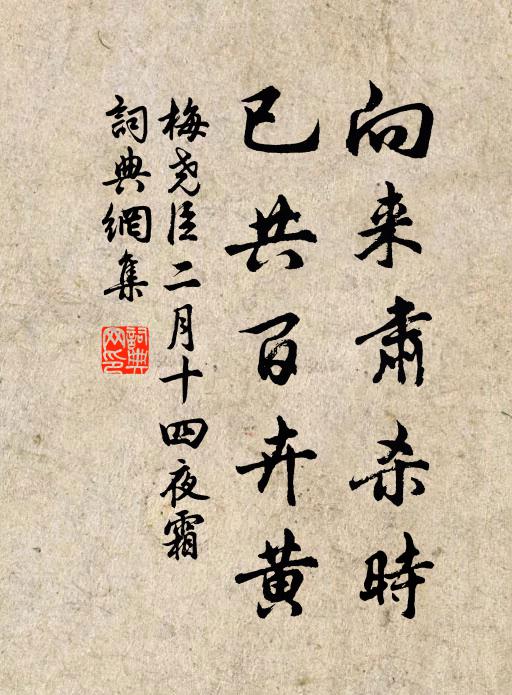 向来肃杀时
已共百卉黄
梅尧臣二月十四夜霜
詞典網集
詞典网印